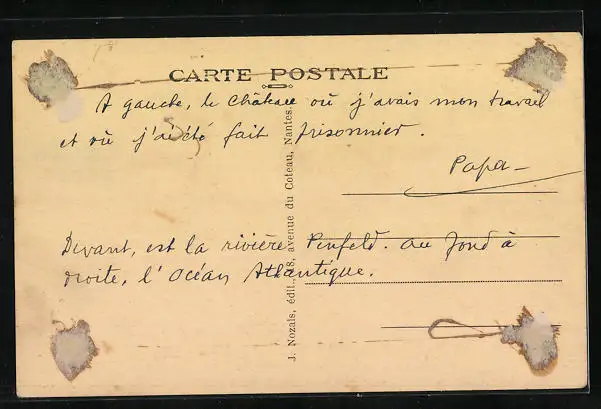 CARTE POSTALE
A gauche, le Château où j'avais mon travail
et où j'ai été fait prisonnier.
Papa
Devant, est la rivière Penfeld. Au fond à
droite, l'Océan Atlantique.
J. Nozais, édit., 18, avenue du Coteau, Nantes.